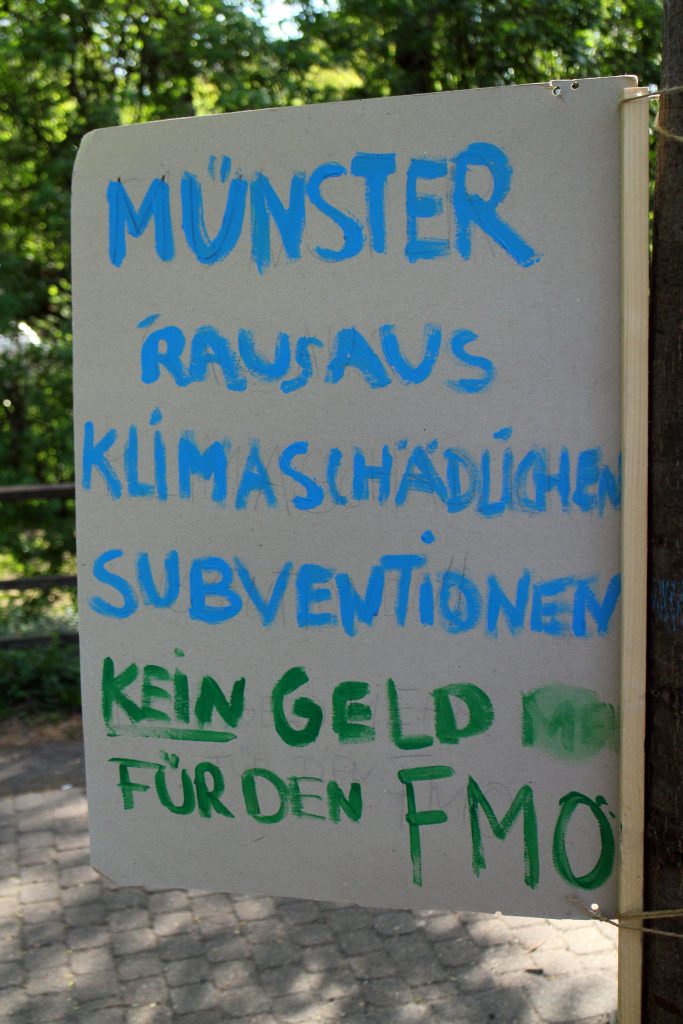 MÜNSTER
RAUS AUS
KLIMASCHÄDLICHEN
SUBVENTIONEN
KEIN GELD
FÜR DEN FMO